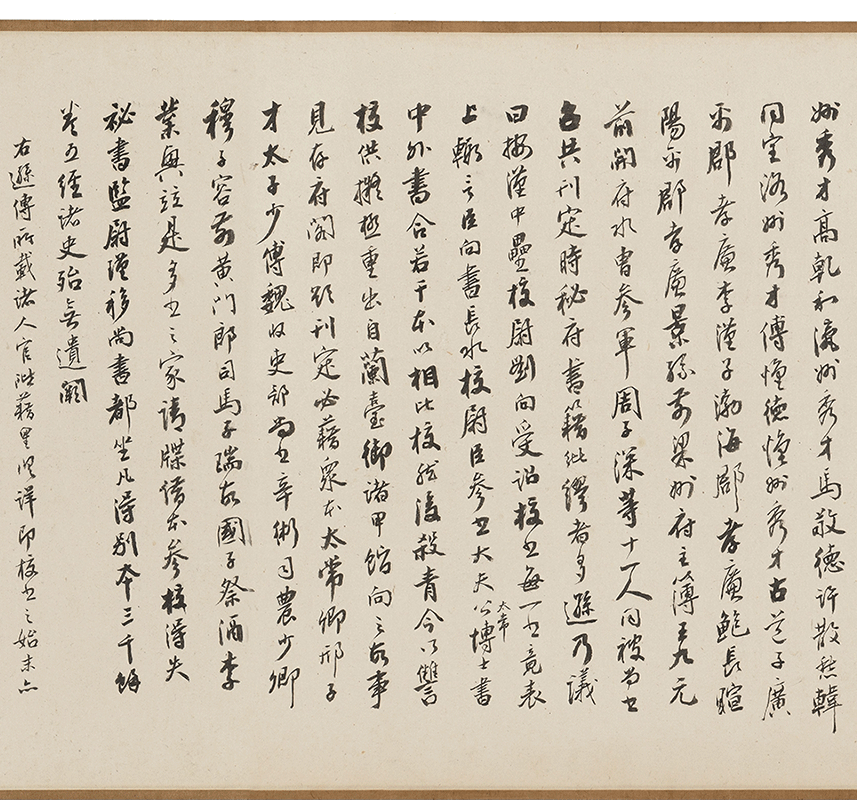 州秀才高乾和瀛州秀才馬敬德許散愁韓
同宝洛州秀才傅懷德懷州秀才古道子廣
平郡孝廉李漢子渤海郡孝廉鮑長暄
陽平郡孝廉景孫前梁州府主簿王九元
前開府水曹參軍周子深等十一人同被尚書
召共刊定時秘府書籍紕繆者多遜乃議
曰按漢中壘校尉劉向受詔校書每一書竟表
上輙言臣向書長水校尉臣參書大夫公太常博士書
中外書合若干本以相比校然後殺青今所讐
校供擬極重出自蘭臺御諸甲館向之故事
見存府閣即欲刊定必藉衆本太常卿邢子
才太子少傅魏收吏部尚書辛術司農少卿
穆子容前黃門郎司馬子瑞故國子祭酒李
業興竝是多書之家請牒借本參校得失
祕書監尉瑾移尚書都坐凡得別本三千餘
卷五經諸史殆無遺闕
右遜傳所載諸人官階籍里詳即校書之始末也